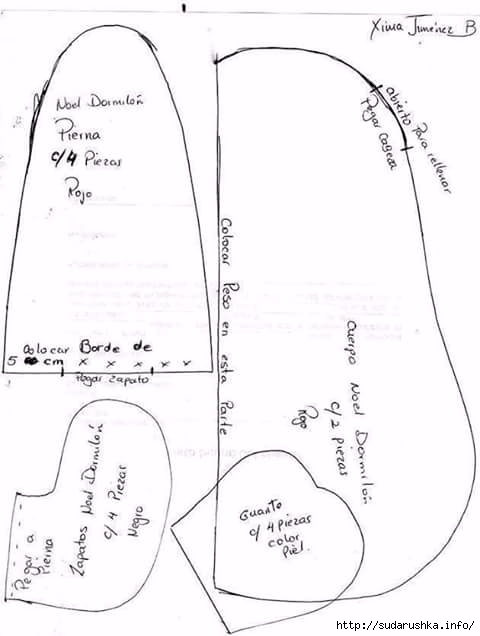 Xima Jiménez B
Noel Dormilón
Pierna
c/4 Piezas
Rojo
Colocar Borde de
5 cm x x x x x
Pegar Zapato
abierto Para rellenar
Pegar Cabeza
Colocar Peso en esta Parte
Cuerpo Noel Dormilón
c/2 piezas
Rojo
Zapatos Noel Dormilón
c/4 Piezas
Negro
Pegar a
Pierna
Guante
c/4 piezas
color
Piel.
http://sudarushka.info/